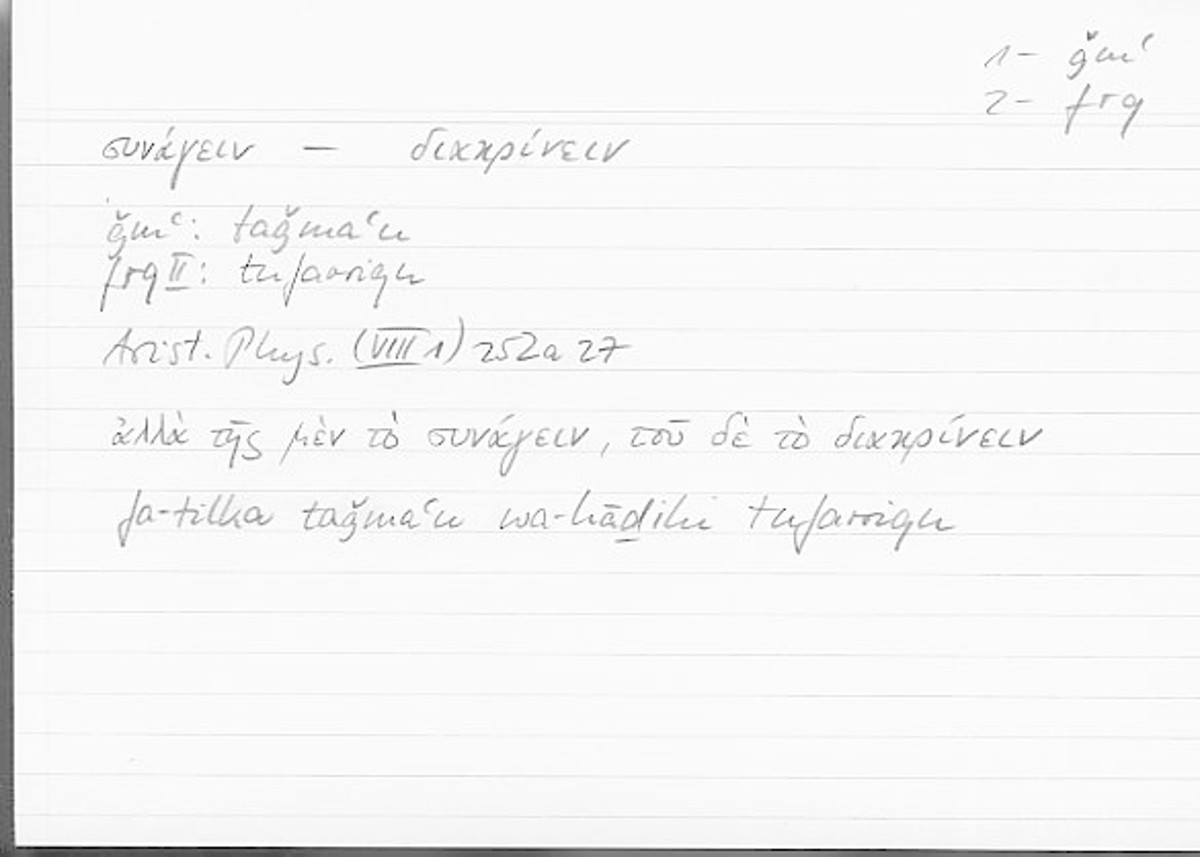 1 - ǧmʿ
2 - frq
συνάγειν — διακρίνειν
ǧmʿ: taǧmaʿu
frq II: tufarriqu
Arist. Phys. (VIII 1) 252a 27
ἀλλὰ τῆς μὲν τὸ συνάγειν, τοῦ δὲ τὸ διακρίνειν
fa-tilka taǧmaʿu wa-hāḏihi tufarriqu